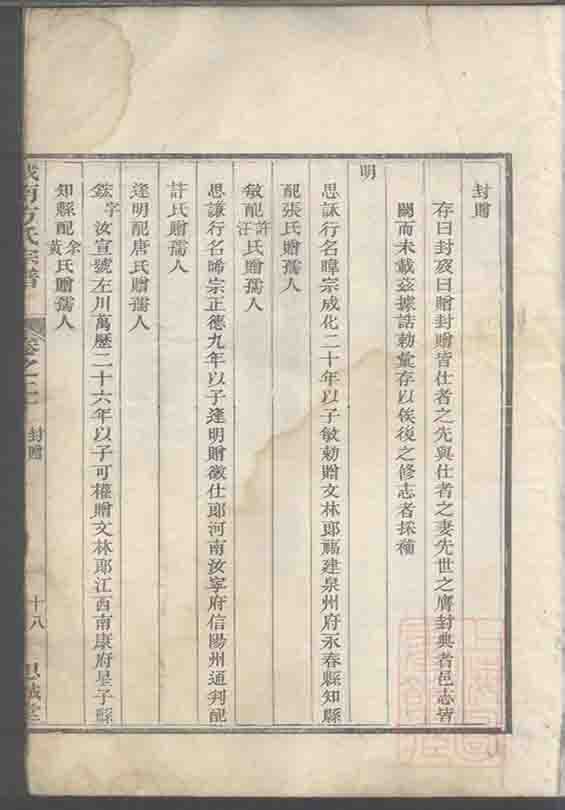 封贈
存曰封歿曰贈封贈皆仕者之先與仕者之妻先世之膺封典者邑志皆
闕而未載茲據誥勅彙存以俟後之修志者採補
明
思誠行名暐宗成化二十年以子敏勅贈文林郎福建泉州府永春縣知縣
配張氏贈孺人
敏配許汪氏贈孺人
思謙行名晞宗正德九年以子逢明贈徵仕郎河南汝寧府信陽州通判配
許氏贈孺人
逢明配唐氏贈孺人
鋐字汝宣號左川萬歷二十六年以子可權贈文林郎江西南康府星子縣
知縣配余黃氏贈孺人
南方氏宗譜
卷之二
封贈
十八
思誠堂